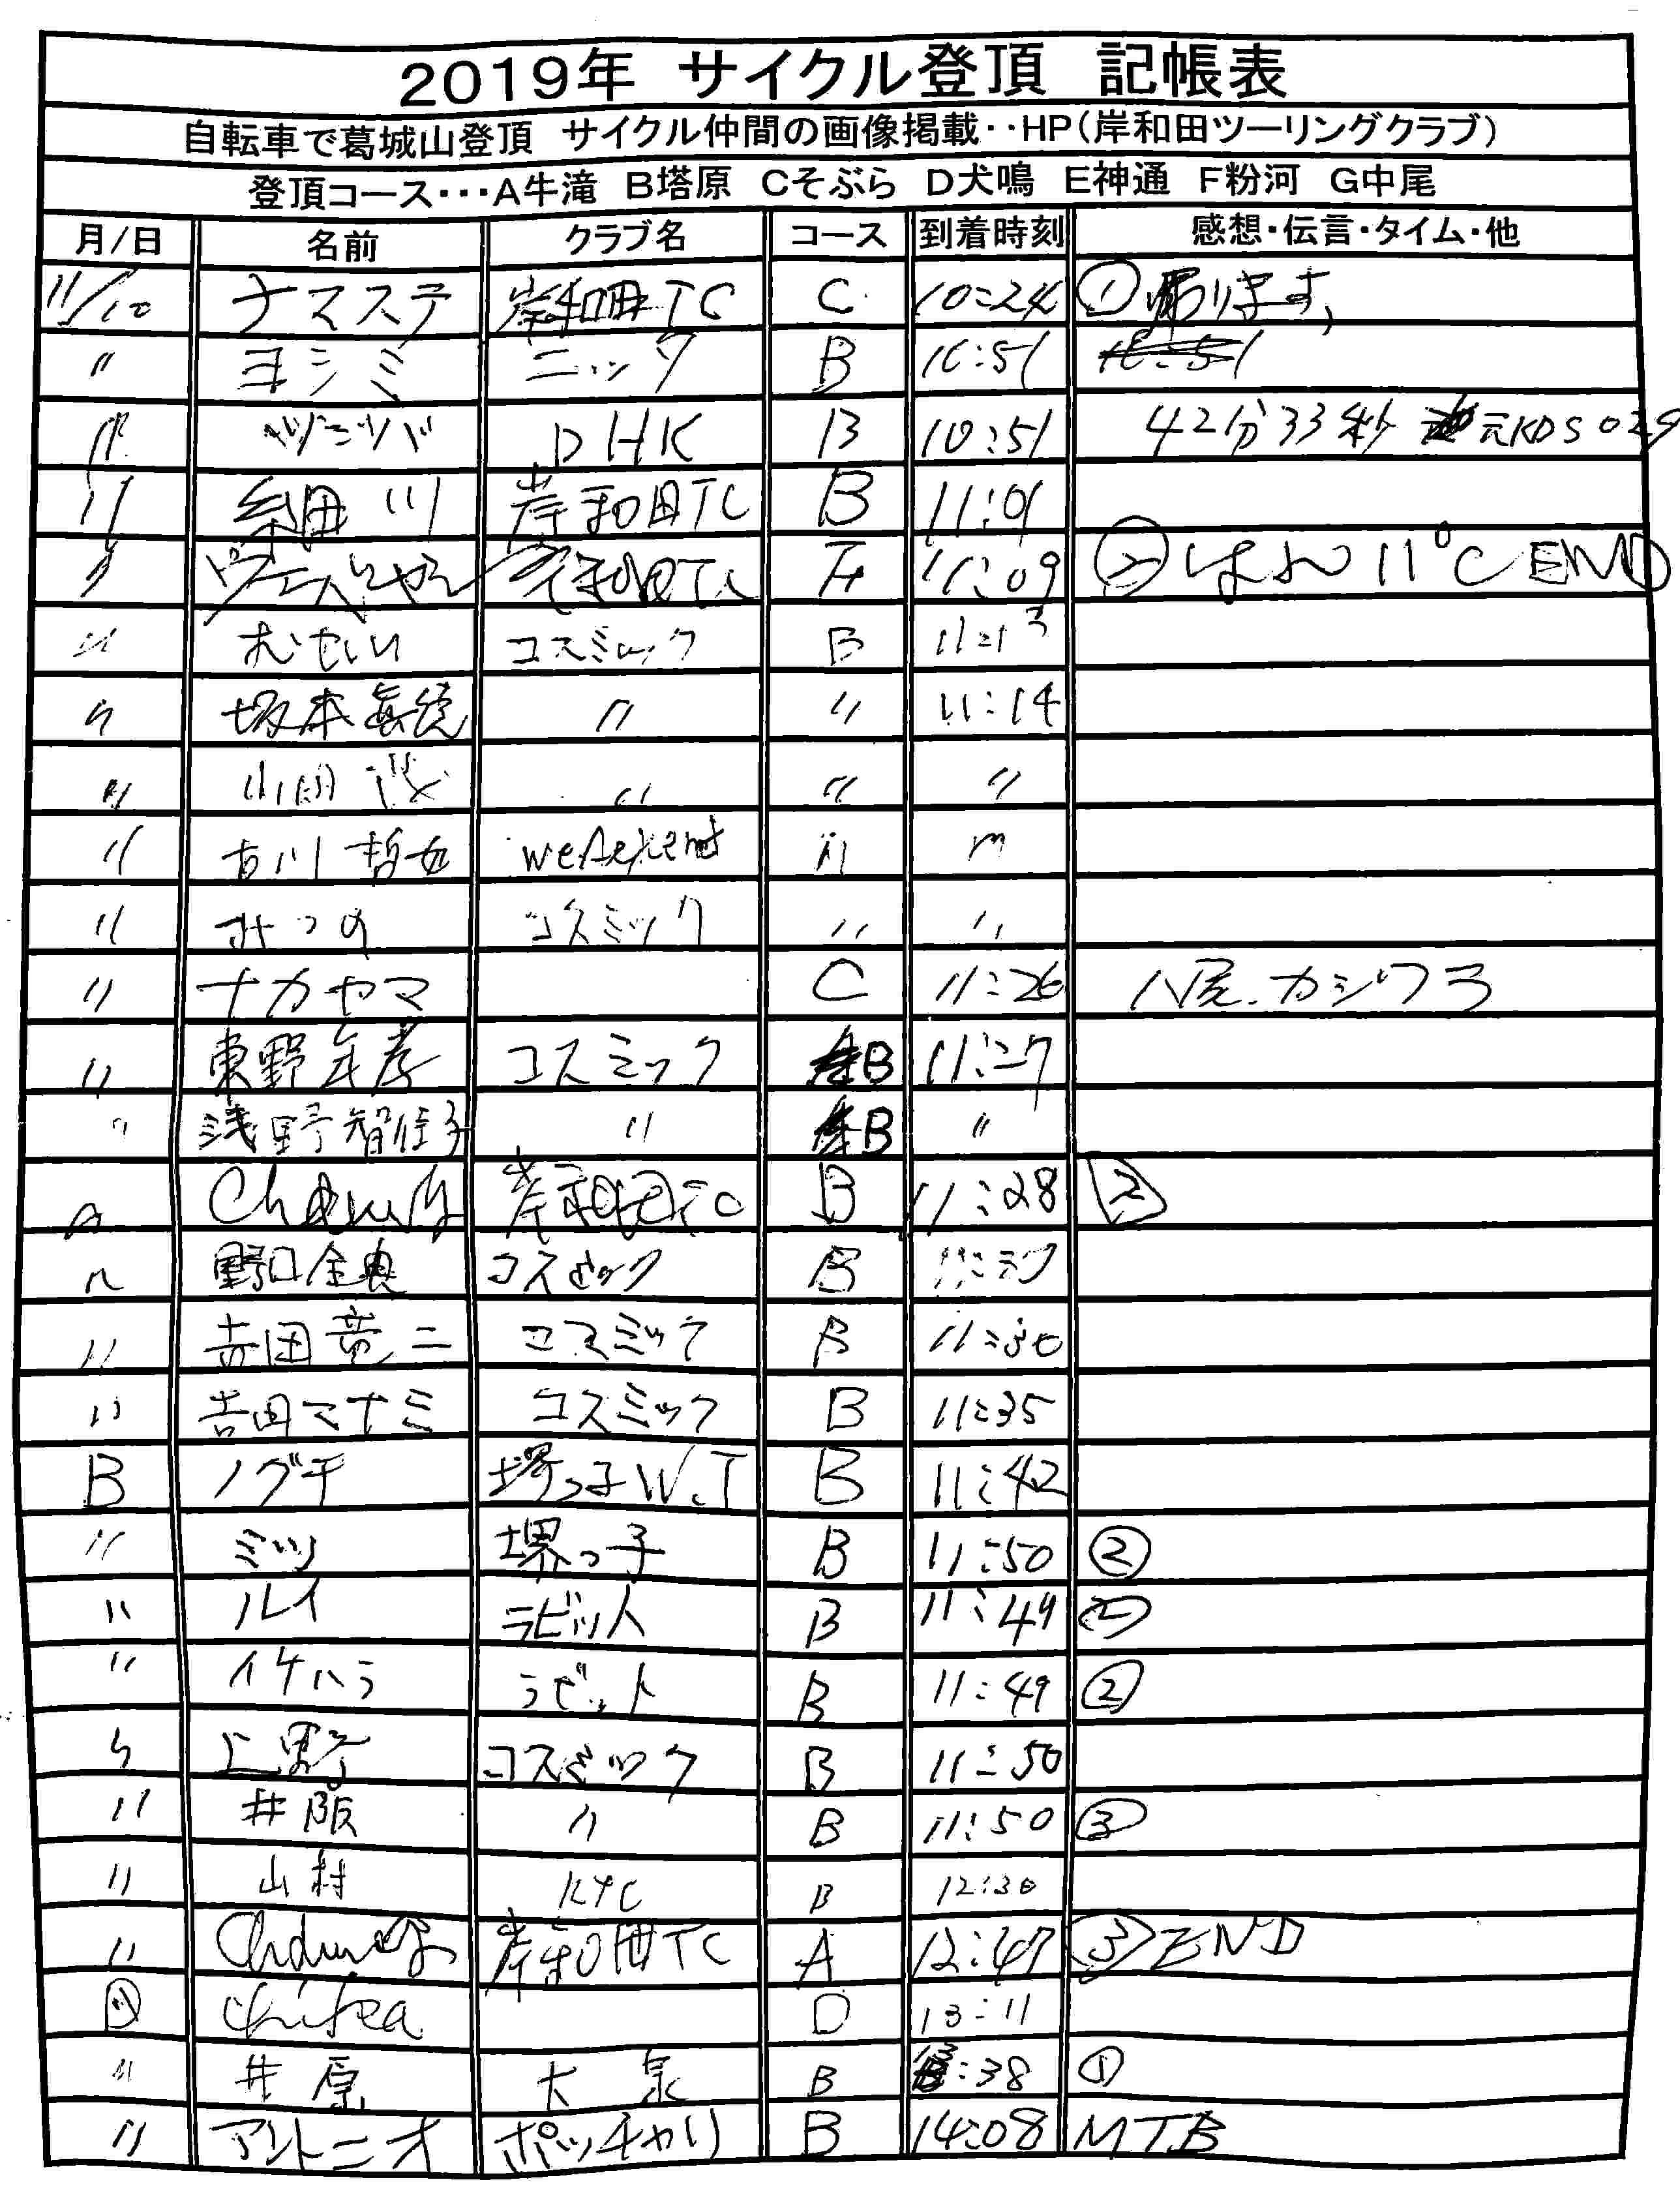 2019年 サイクル登頂 記帳表
自転車で葛城山登頂 サイクル仲間の画像掲載‥HP(岸和田ツーリングクラブ)
登頂コース･･･A牛滝 B塔原 Cそぶら D犬鳴 E神通 F粉河 G中尾
月/日 名前 クラブ名 コース 到着時刻 感想・伝言・タイム・他
11/10 ナマステ 岸和田TC C 10:24 ①
〃 ヨシミ ニック B 10:51
〃 DHK B 10:51 42分33秒 元KDS029
〃 糸田川 岸和田TC B 11:01
〃 岸和田TC F 11:09 ② 11°C END
〃 むせい コスミック B 11:13
〃 坂本 〃 〃 11:14
〃 〃 〃 〃
〃 古川 weekend 〃 〃
〃 みつの コスミック 〃 〃
〃 ナカヤマ C 11:26 八尾.カジワラ
〃 東野年孝 コスミック B 11:27
〃 浅野智佳子 〃 B 〃
〃 岸和田TC B 11:28 2
〃 野口 コスミック B
〃 吉田竜二 コスミック B 11:30
〃 吉田マナミ コスミック B 11:35
B ノグチ 堺っ子W.T B 11:42
〃 ミツ 堺っ子 B 11:50 ②
〃 ルイ ラビット B 11:49 ②
〃 イケハラ ラビット B 11:49 ②
〃 上野 コスミック B 11:50
〃 井阪 〃 B 11:50 ③
〃 山村 KTC B 12:30
〃 岸和田TC A 12:47 ③ END
D 13:11
〃 井原 大泉 B :38 ①
〃 アントニオ ポッチャリ B 14:08 MTB